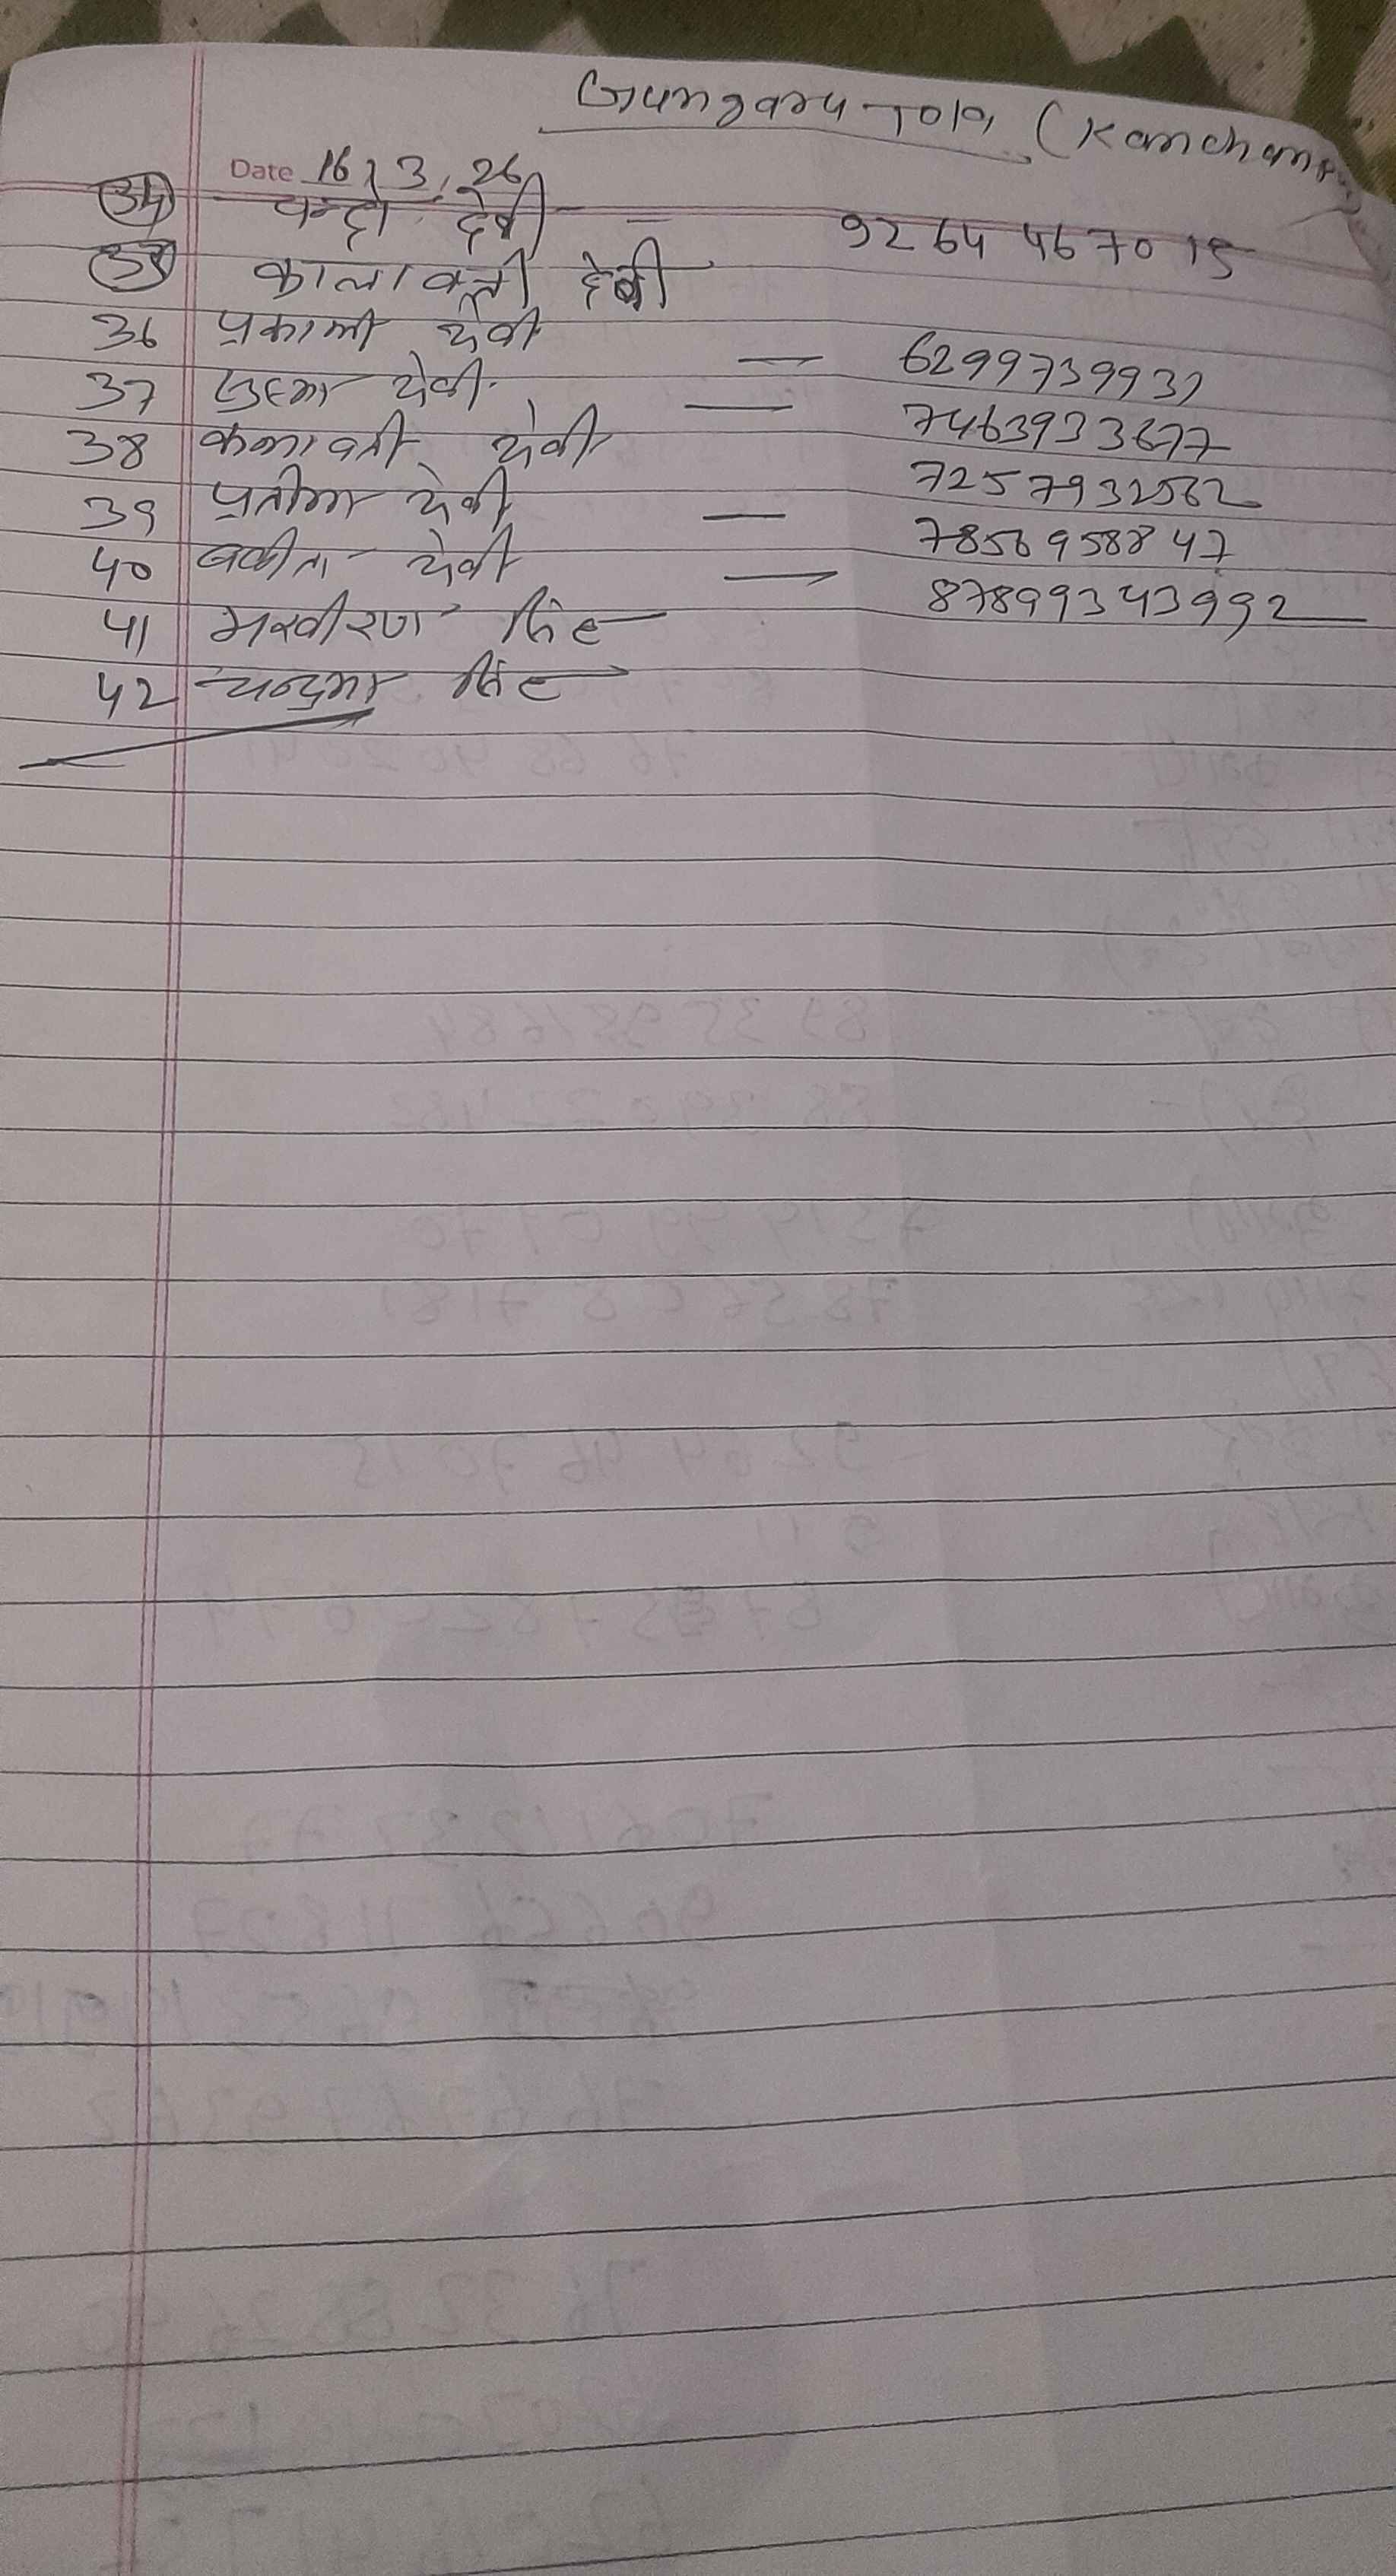 Gungaru Tola (Kanchanp
Date 16, 3, 26
34 चन्दो देवी - 9264467015
35 कालावती देवी
36 प्रकाशी देवी — 6299739931
37 देवी — 7463933677
38 कलावती देवी 7257932562
39 प्रतीमा देवी — 7856958847
40 बबीता देवी — 87899343992
41 सिंह
42 चन्द्रमा सिंह